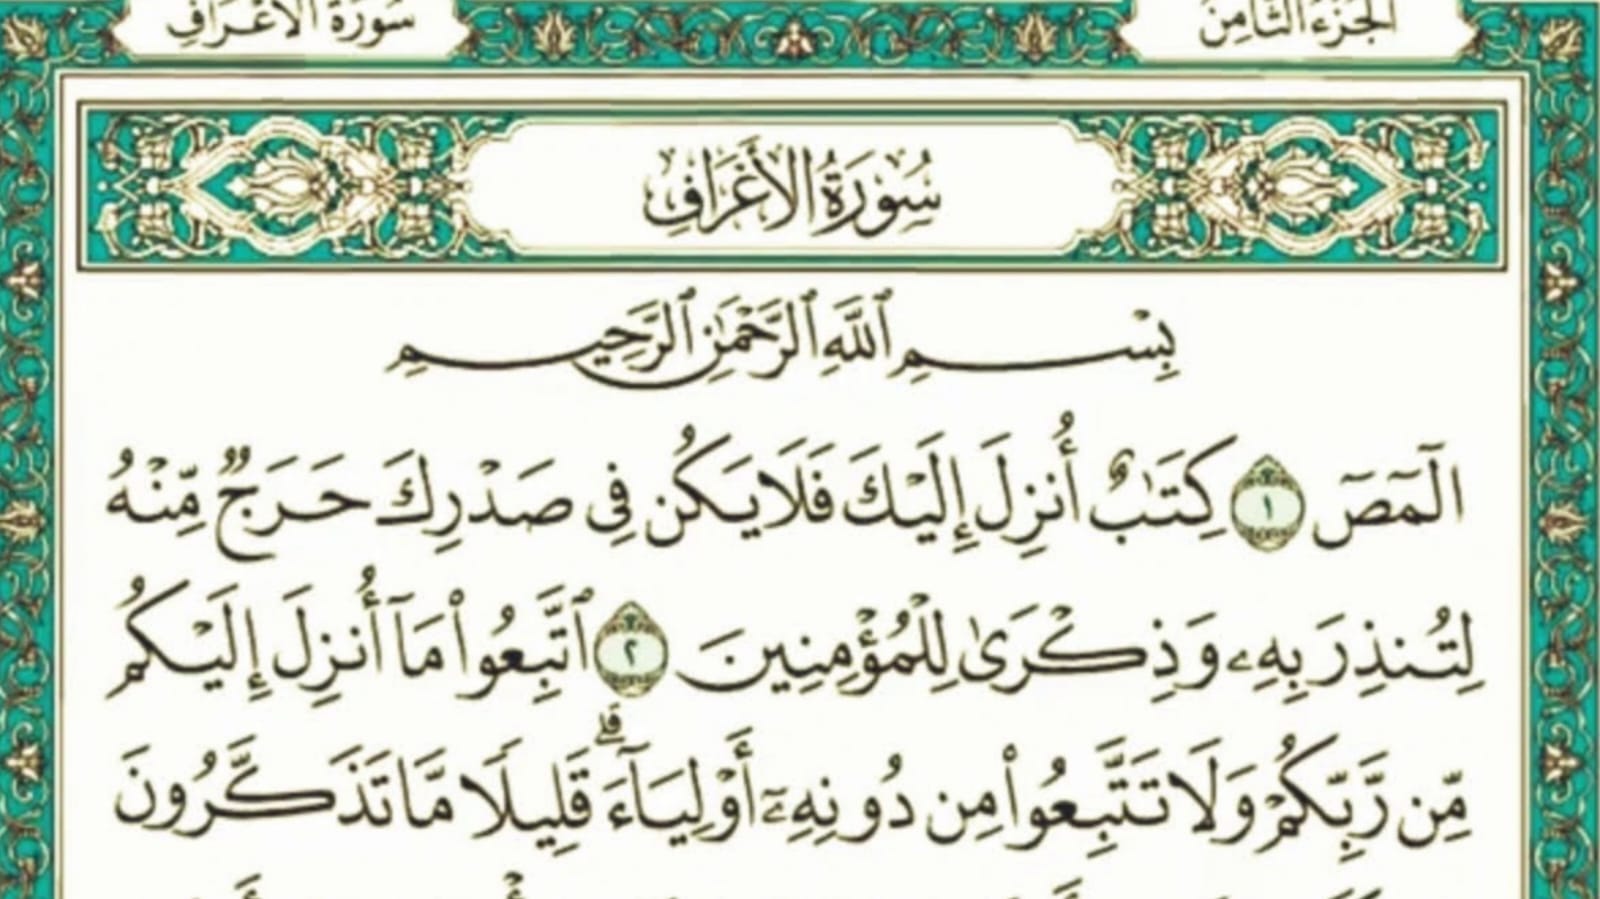 الجزء الثامن
سورة الأعراف
سُورَةُ الأَعْرَافِ
بِسْمِ ٱللَّهِ ٱلرَّحْمَٰنِ ٱلرَّحِيمِ
الٓمٓصٓ ١ كِتَٰبٌ أُنزِلَ إِلَيْكَ فَلَا يَكُن فِى صَدْرِكَ حَرَجٌ مِّنْهُ
لِتُنذِرَ بِهِۦ وَذِكْرَىٰ لِلْمُؤْمِنِينَ ٢ ٱتَّبِعُوا۟ مَآ أُنزِلَ إِلَيْكُم
مِّن رَّبِّكُمْ وَلَا تَتَّبِعُوا۟ مِن دُونِهِۦٓ أَوْلِيَآءَ ۗ قَلِيلًا مَّا تَذَكَّرُونَ